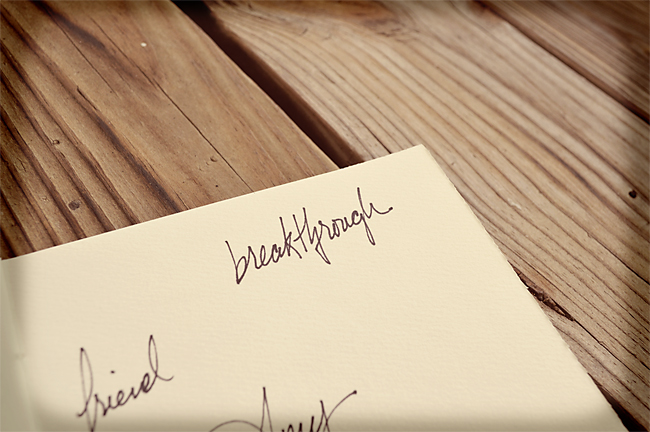 breakthrough
friend